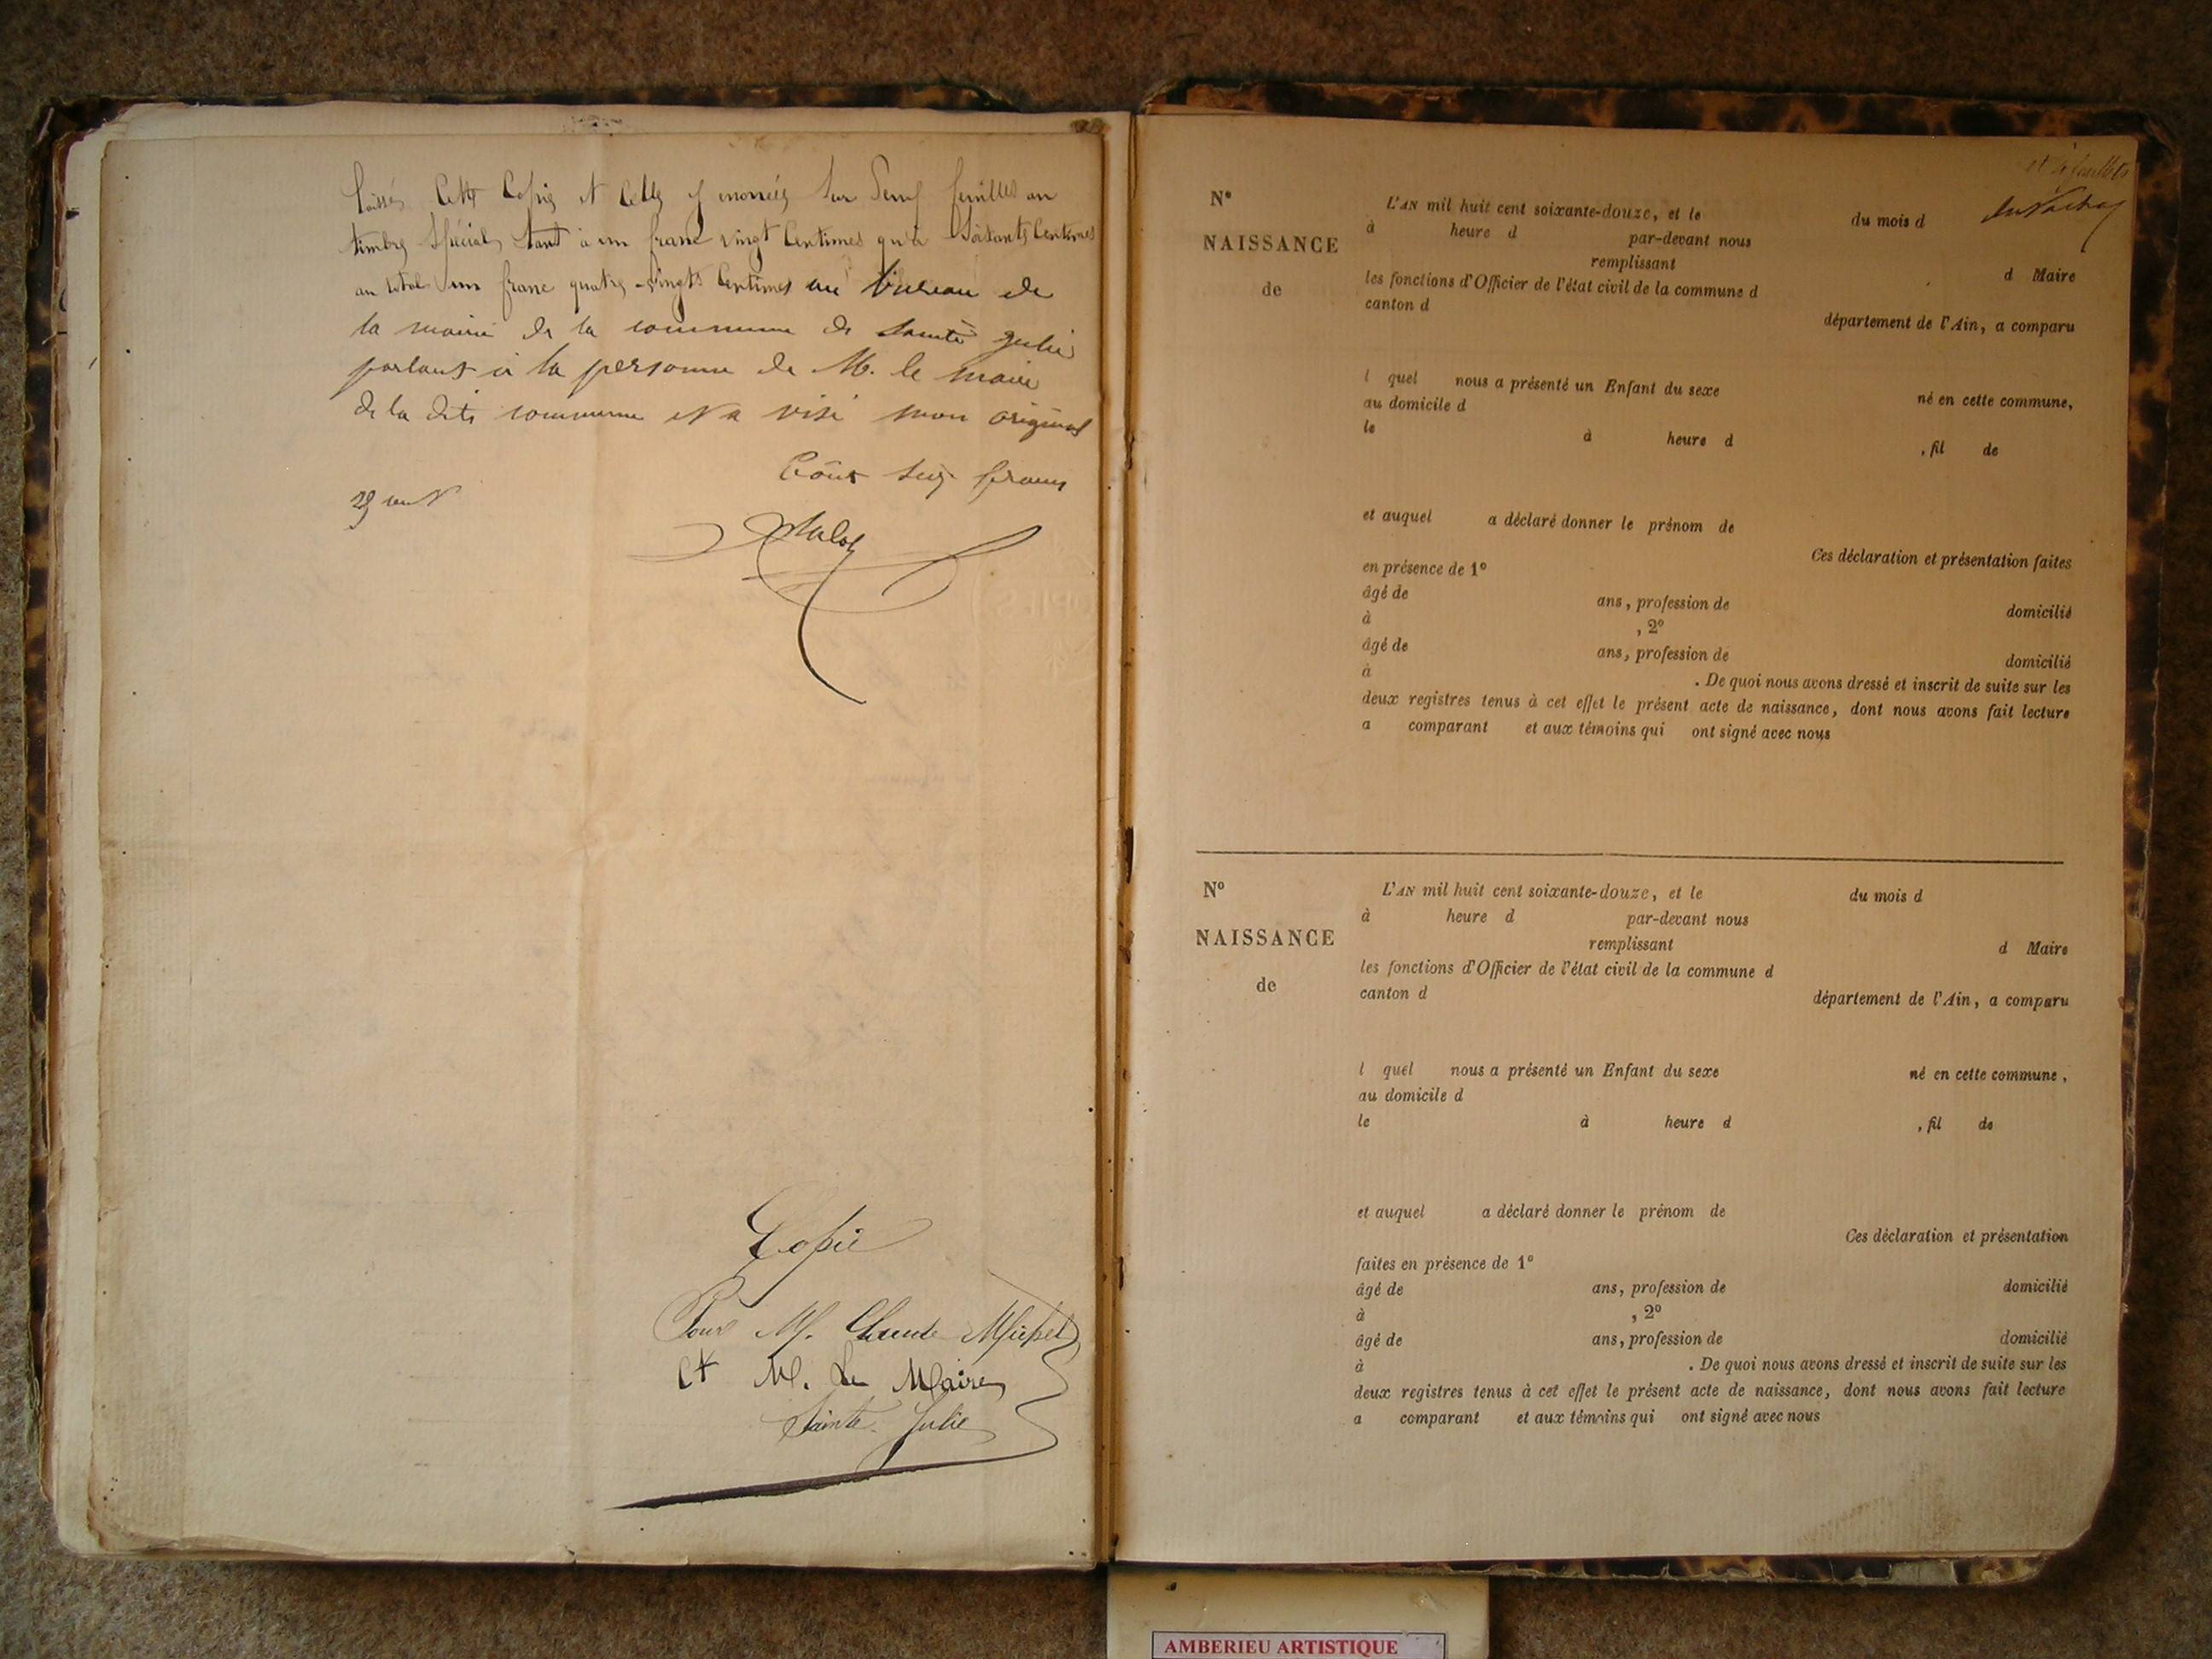 laissé cette Copie et celle y énoncée sur deux feuilles au
timbre spécial, tant à un franc vingt Centimes qu'à soixante Centimes
au total un franc quatre-vingts Centimes au bureau de
la mairie de la commune de Sainte Julie
parlant à la personne de M. le maire
de la dite commune et a visé mon original
Coût
francs
Copie
Pour M. Claude Michel
Et M. Le Maire
Sainte Julie
N°
NAISSANCE
de
L'AN mil huit cent soixante-douze, et le du mois d
à heure d par-devant nous
remplissant d Maire
les fonctions d'Officier de l'état civil de la commune d
canton d département de l'Ain, a comparu
l quel nous a présenté un Enfant du sexe né en cette commune,
au domicile d
le à heure d , fil de
et auquel a déclaré donner le prénom de
Ces déclaration et présentation faites
en présence de 1°
âgé de ans, profession de domicilié
à , 2°
âgé de ans, profession de domicilié
à . De quoi nous avons dressé et inscrit de suite sur les
deux registres tenus à cet effet le présent acte de naissance, dont nous avons fait lecture
a comparant et aux témoins qui ont signé avec nous
N°
NAISSANCE
de
L'AN mil huit cent soixante-douze, et le du mois d
à heure d par-devant nous
remplissant d Maire
les fonctions d'Officier de l'état civil de la commune d
canton d département de l'Ain, a comparu
l quel nous a présenté un Enfant du sexe né en cette commune,
au domicile d
le à heure d , fil de
et auquel a déclaré donner le prénom de
Ces déclaration et présentation
faites en présence de 1°
âgé de ans, profession de domicilié
à , 2°
âgé de ans, profession de domicilié
à . De quoi nous avons dressé et inscrit de suite sur les
deux registres tenus à cet effet le présent acte de naissance, dont nous avons fait lecture
a comparant et aux témoins qui ont signé avec nous
AMBERIEU ARTISTIQUE